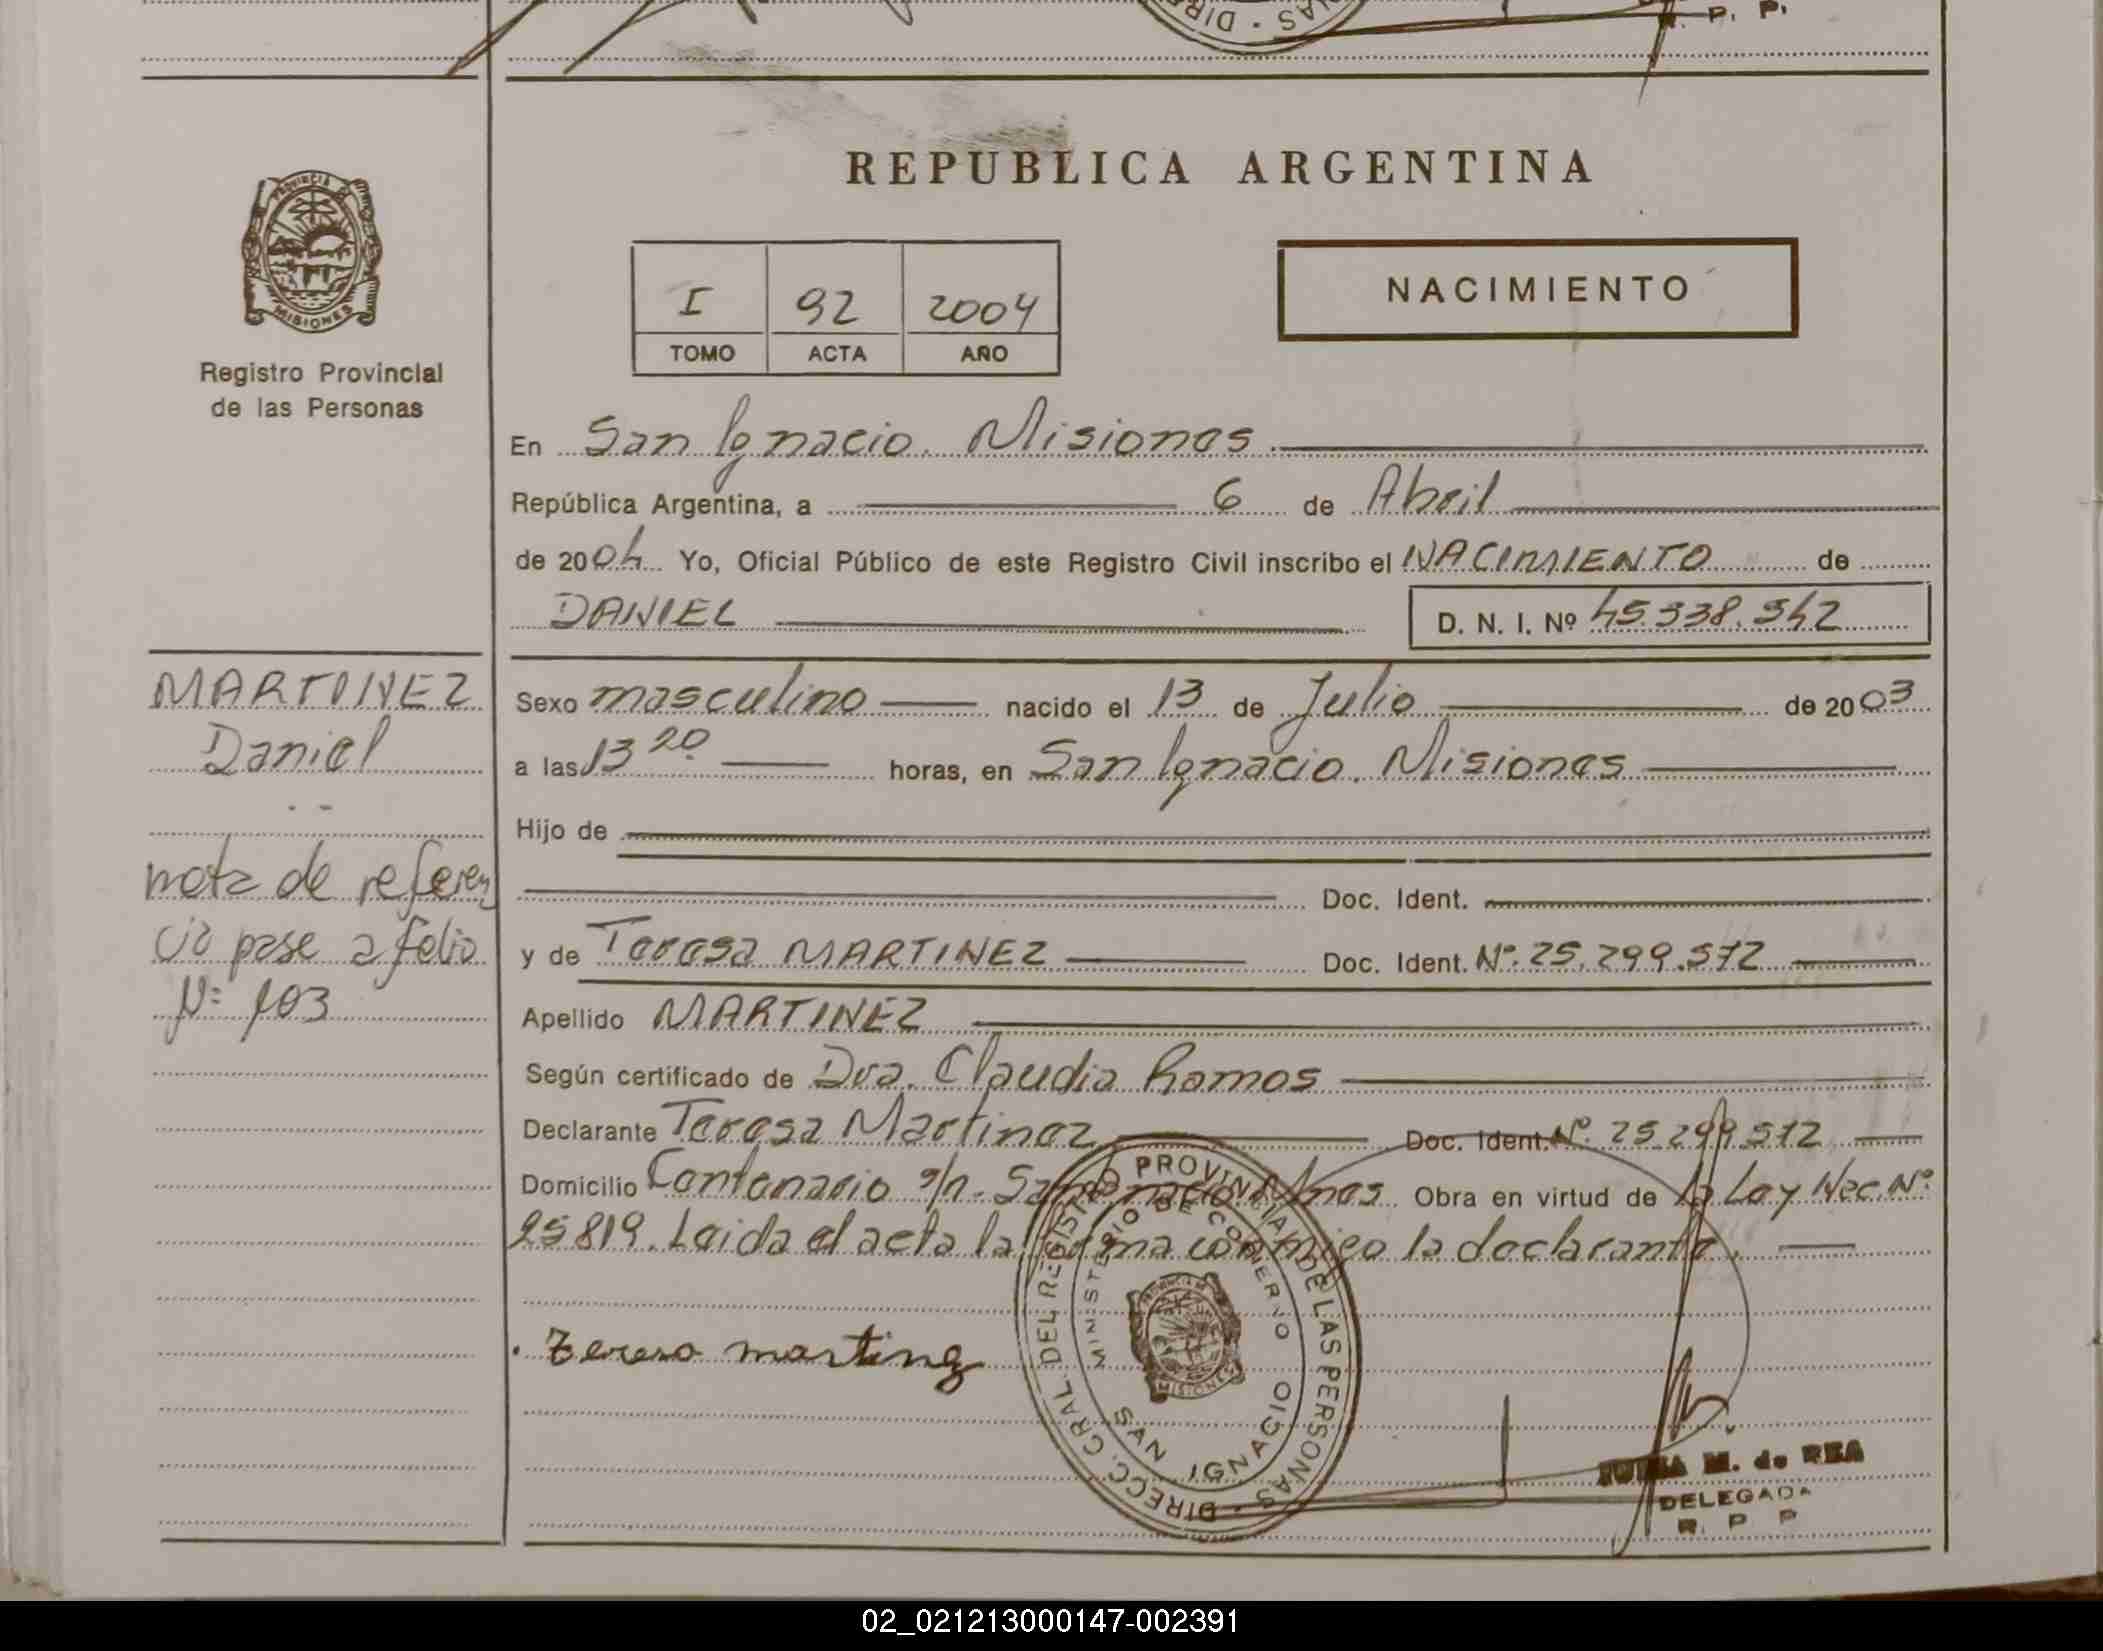 R. P. P.
REPUBLICA ARGENTINA
I 92 2004
TOMO ACTA AÑO
NACIMIENTO
PROVINCIA DE
MISIONES
Registro Provincial
de las Personas
En San Ignacio. Misiones
República Argentina, a 6 de Abril
de 2004 Yo, Oficial Público de este Registro Civil inscribo el NACIMIENTO de
DANIEL D. N. I. Nº 45.338.542
MARTINEZ
Daniel
nota de referen
cia pase a folio
Nº 103
Sexo masculino nacido el 13 de Julio de 2003
a las 13 20 horas, en San Ignacio. Misiones
Hijo de
Doc. Ident.
y de Teresa MARTINEZ Doc. Ident. Nº. 25.299.572
Apellido MARTINEZ
Según certificado de Dra. Claudia Ramos
Declarante Teresa Martinez Doc. Ident. Nº. 25.299.572
Domicilio Centenario s/n. San Ignacio Mnes Obra en virtud de la Ley Nac. Nº
25819. Leida el acta la firma conmigo la declarante.
tereso marting
DIRECC. GRAL. DEL REGISTRO PROVINCIAL DE LAS PERSONAS
MINISTERIO DE GOBIERNO
SAN IGNACIO
M. de REA
DELEGADA
R. P. P
02_021213000147-002391